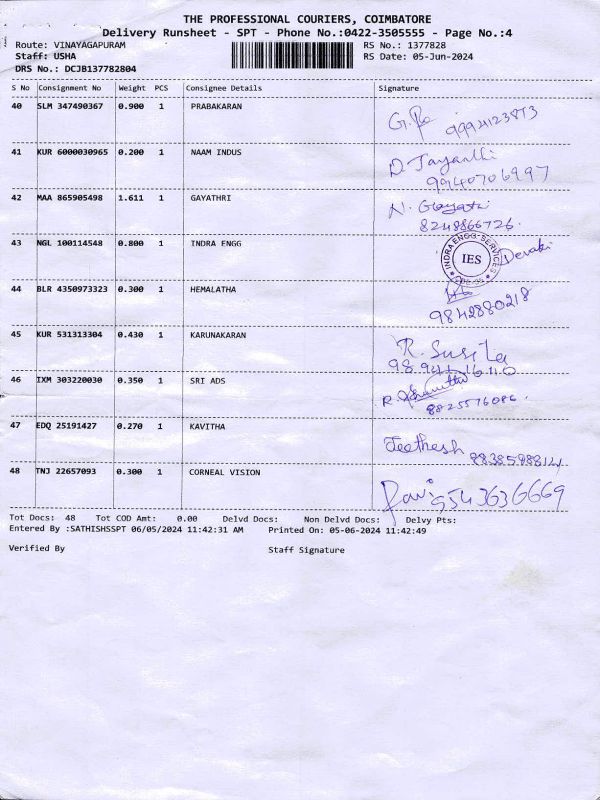 THE PROFESSIONAL COURIERS, COIMBATORE
Delivery Runsheet - SPT - Phone No.:0422-3505555 - Page No.:4
Route: VINAYAGAPURAM RS No.: 1377828
Staff: USHA RS Date: 05-Jun-2024
DRS No.: DCJB137782804
S No Consignment No Weight PCS Consignee Details Signature
40 SLM 347490367 0.900 1 PRABAKARAN
9994123873
41 KUR 6000030965 0.200 1 NAAM INDUS D. Jayanthi
9940706997
42 MAA 865905498 1.611 1 GAYATHRI N. Gayatri
8248866726.
43 NGL 100114548 0.800 1 INDRA ENGG INDRA ENGG-SERVICES IES Devaki
44 BLR 4350973323 0.300 1 HEMALATHA
9842880218
45 KUR 531313304 0.430 1 KARUNAKARAN R. Susila
46 IXM 303220030 0.350 1 SRI ADS
8825576086.
47 EDQ 25191427 0.270 1 KAVITHA Jeethesh
48 TNJ 22657093 0.300 1 CORNEAL VISION Ravi 9543636669
Tot Docs: 48 Tot COD Amt: 0.00 Delvd Docs: Non Delvd Docs: Delvy Pts:
Entered By :SATHISHSSPT 06/05/2024 11:42:31 AM Printed On: 05-06-2024 11:42:49
Verified By Staff Signature